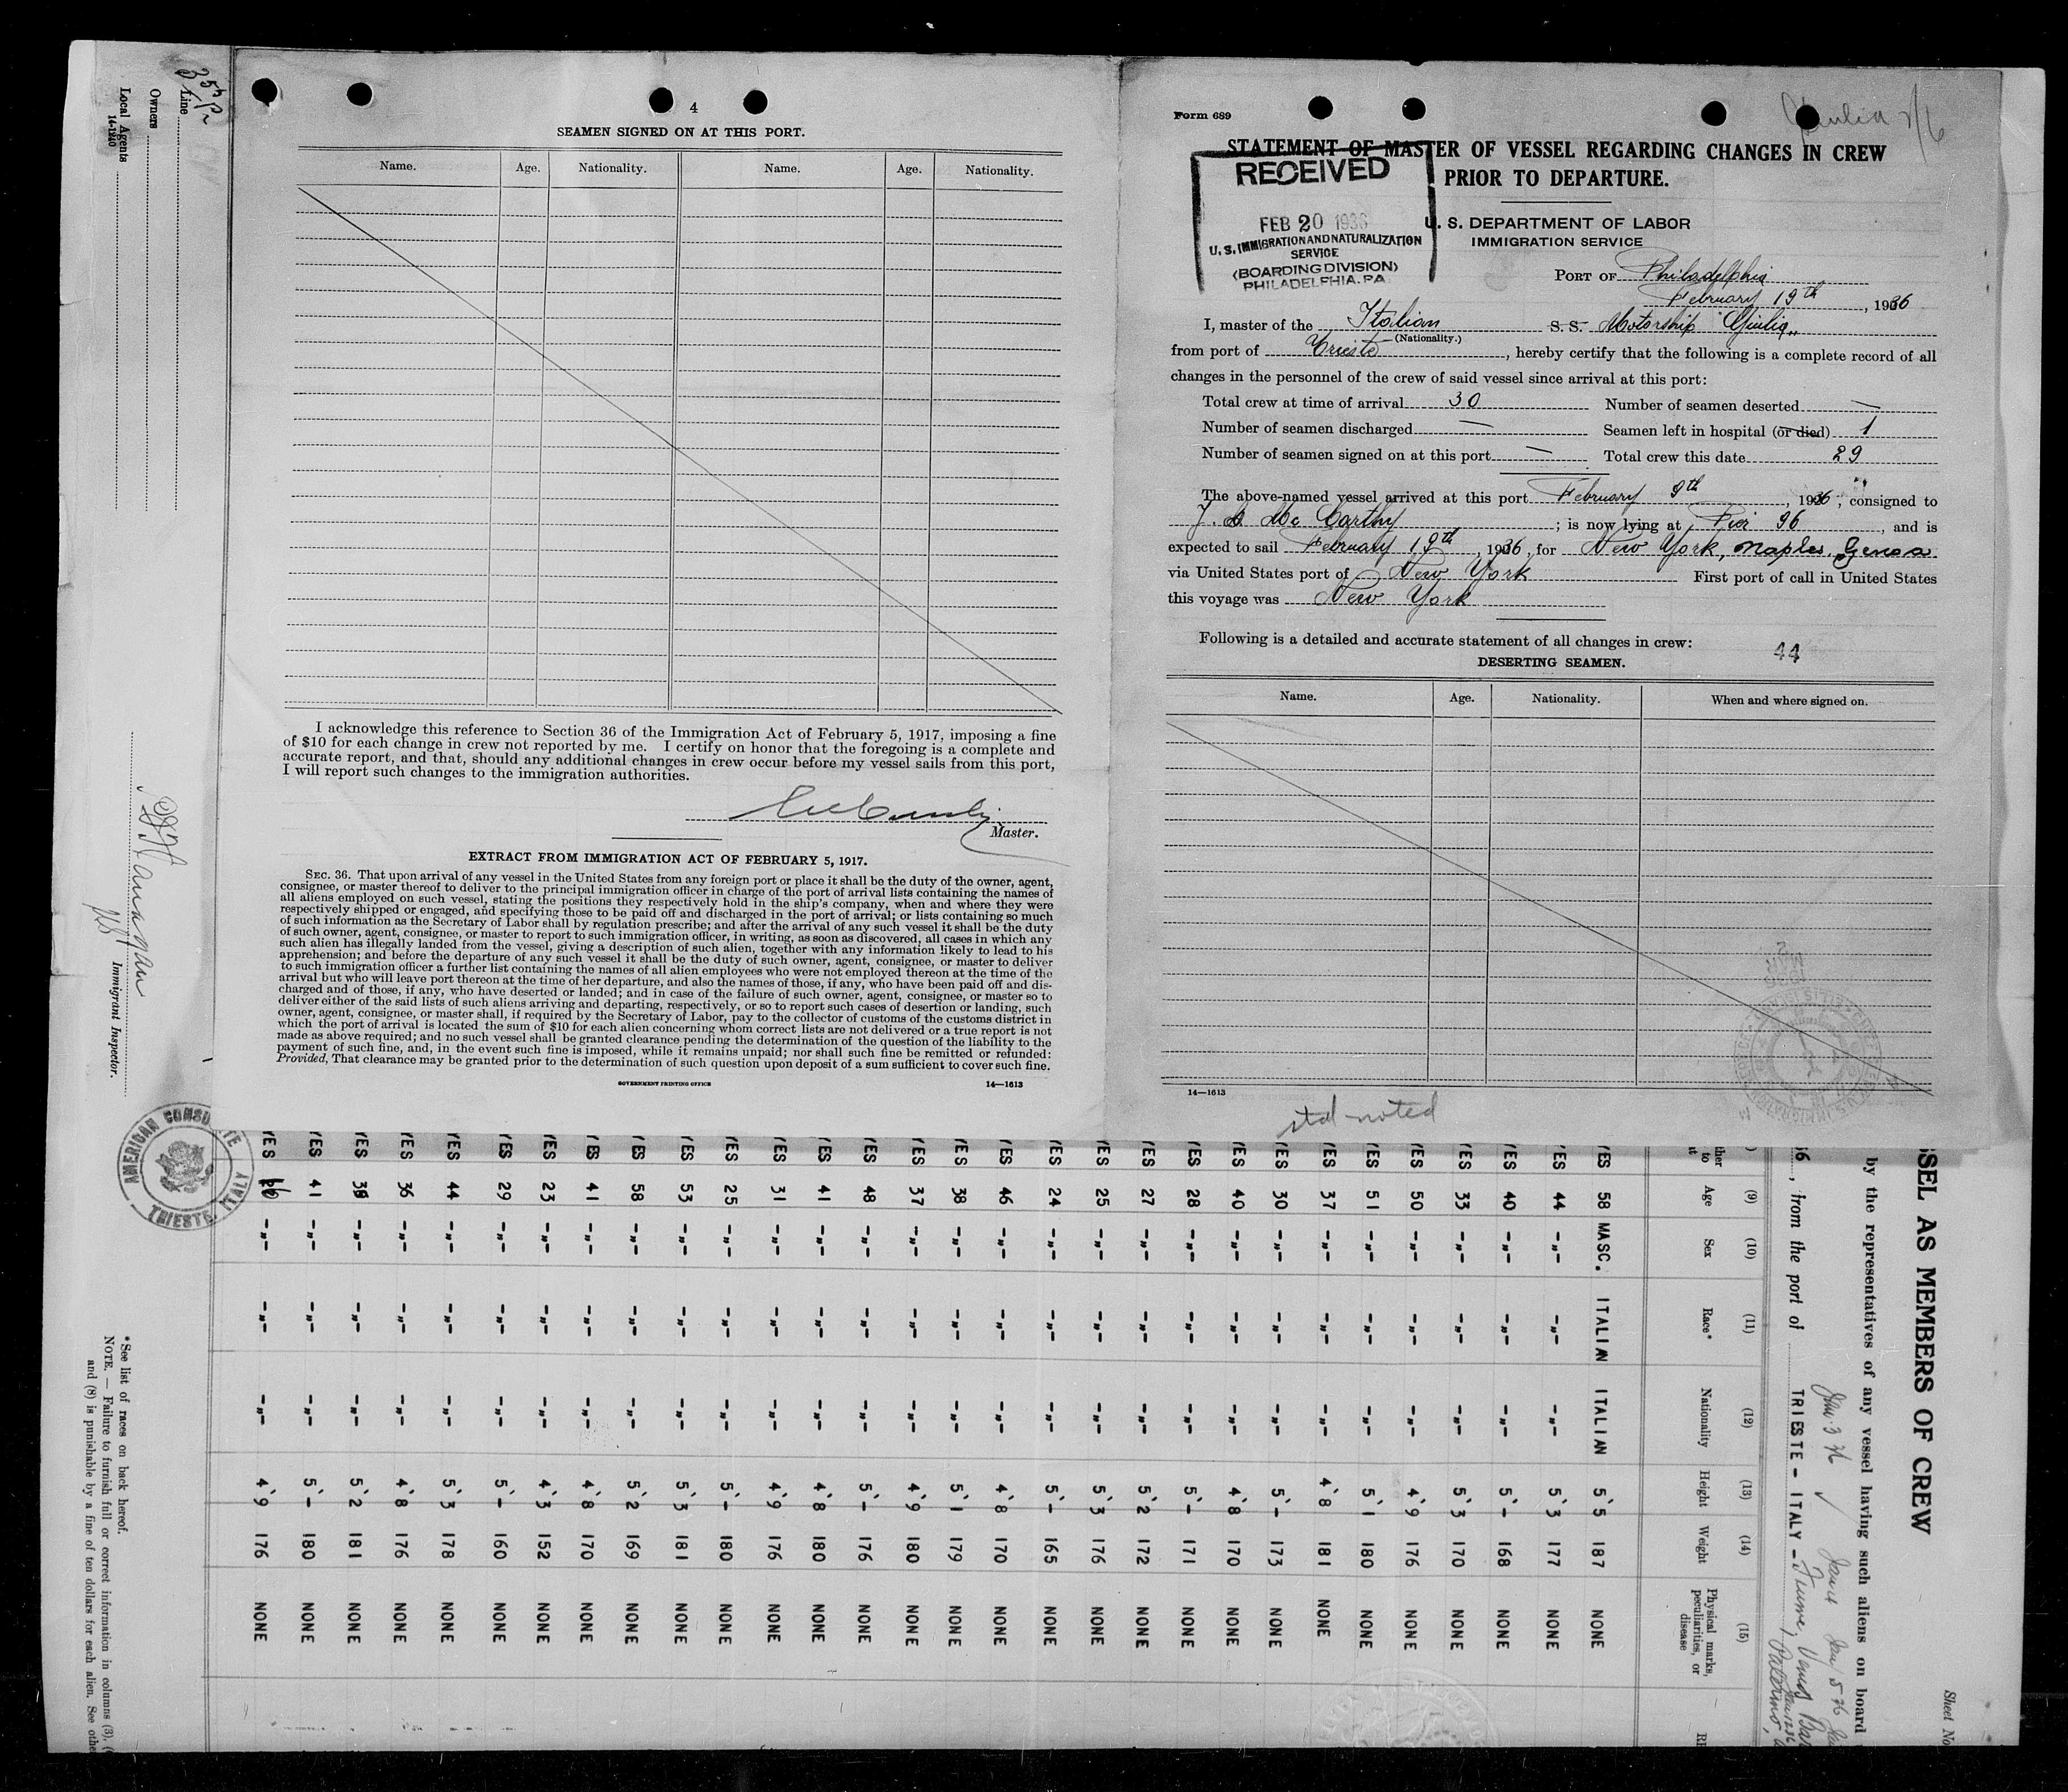 4
SEAMEN SIGNED ON AT THIS PORT.
Name. Age. Nationality. Name. Age. Nationality.
I acknowledge this reference to Section 36 of the Immigration Act of February 5, 1917, imposing a fine
of $10 for each change in crew not reported by me. I certify on honor that the foregoing is a complete and
accurate report, and that, should any additional changes in crew occur before my vessel sails from this port,
I will report such changes to the immigration authorities.
Master.
EXTRACT FROM IMMIGRATION ACT OF FEBRUARY 5, 1917.
SEC. 36. That upon arrival of any vessel in the United States from any foreign port or place it shall be the duty of the owner, agent,
consignee, or master thereof to deliver to the principal immigration officer in charge of the port of arrival lists containing the names of
all aliens employed on such vessel, stating the positions they respectively hold in the ship's company, when and where they were
respectively shipped or engaged, and specifying those to be paid off and discharged in the port of arrival; or lists containing so much
of such information as the Secretary of Labor shall by regulation prescribe; and after the arrival of any such vessel it shall be the duty
of such owner, agent, consignee, or master to report to such immigration officer, in writing, as soon as discovered, all cases in which any
such alien has illegally landed from the vessel, giving a description of such alien, together with any information likely to lead to his
apprehension; and before the departure of any such vessel it shall be the duty of such owner, agent, consignee, or master to deliver
to such immigration officer a further list containing the names of all alien employees who were not employed thereon at the time of the
arrival but who will leave port thereon at the time of her departure, and also the names of those, if any, who have been paid off and dis-
charged and of those, if any, who have deserted or landed; and in case of the failure of such owner, agent, consignee, or master so to
deliver either of the said lists of such aliens arriving and departing, respectively, or so to report such cases of desertion or landing, such
owner, agent, consignee, or master shall, if required by the Secretary of Labor, pay to the collector of customs of the customs district in
which the port of arrival is located the sum of $10 for each alien concerning whom correct lists are not delivered or a true report is not
made as above required; and no such vessel shall be granted clearance pending the determination of the question of the liability to the
payment of such fine, and, in the event such fine is imposed, while it remains unpaid; nor shall such fine be remitted or refunded:
Provided, That clearance may be granted prior to the determination of such question upon deposit of a sum sufficient to cover such fine.
GOVERNMENT PRINTING OFFICE 14—1613
Form 689
Giulia 2/6
STATEMENT OF MASTER OF VESSEL REGARDING CHANGES IN CREW
PRIOR TO DEPARTURE.
RECEIVED
FEB 20 1936
U.S. IMMIGRATION AND NATURALIZATION
SERVICE
(BOARDING DIVISION)
PHILADELPHIA. PA.
U. S. DEPARTMENT OF LABOR
IMMIGRATION SERVICE
PORT OF Philadelphia
February 19th, 1936
I, master of the Italian S. S. Motorship "Giulia"
(Nationality.)
from port of Trieste, hereby certify that the following is a complete record of all
changes in the personnel of the crew of said vessel since arrival at this port:
Total crew at time of arrival 30 Number of seamen deserted —
Number of seamen discharged — Seamen left in hospital (or died) 1
Number of seamen signed on at this port — Total crew this date 29
The above-named vessel arrived at this port February 9th, 1936, consigned to
Mc Carthy; is now lying at Pier 96, and is
expected to sail February 19th, 1936, for New York, Naples, Genoa
via United States port of New York First port of call in United States
this voyage was New York
Following is a detailed and accurate statement of all changes in crew:
44
DESERTING SEAMEN.
Name. Age. Nationality. When and where signed on.
14—1613
std noted
Line
Owners
Local Agents
14-1240
Immigrant Inspector.
AMERICAN CONSULATE
TRIESTE, ITALY
SSEL AS MEMBERS OF CREW
Sheet No
by the representatives of any vessel having such aliens on board
, from the port of TRIESTE - ITALY - Fiume,
(9) (10) (11) (12) (13) (14) (15)
Age Sex Race* Nationality Height Weight Physical marks, peculiarities, or disease
YES 58 MASC. ITALIAN ITALIAN 5'5 187 NONE
YES 44 -"- -"- -"- 5'3 177 NONE
YES 40 -"- -"- -"- 5'- 168 NONE
YES 33 -"- -"- -"- 5'3 170 NONE
YES 50 -"- -"- -"- 4'9 176 NONE
YES 51 -"- -"- -"- 5'1 180 NONE
YES 37 -"- -"- -"- 4'8 181 NONE
YES 30 -"- -"- -"- 5'- 173 NONE
YES 40 -"- -"- -"- 4'8 170 NONE
YES 28 -"- -"- -"- 5'- 171 NONE
YES 27 -"- -"- -"- 5'2 172 NONE
YES 25 -"- -"- -"- 5'3 176 NONE
YES 24 -"- -"- -"- 5'- 165 NONE
YES 46 -"- -"- -"- 4'8 170 NONE
YES 38 -"- -"- -"- 5'1 179 NONE
YES 37 -"- -"- -"- 4'9 180 NONE
YES 48 -"- -"- -"- 5'- 176 NONE
YES 41 -"- -"- -"- 4'8 180 NONE
YES 31 -"- -"- -"- 4'9 176 NONE
YES 25 -"- -"- -"- 5'- 180 NONE
YES 53 -"- -"- -"- 5'3 181 NONE
YES 58 -"- -"- -"- 5'2 169 NONE
YES 41 -"- -"- -"- 4'8 170 NONE
YES 23 -"- -"- -"- 4'3 152 NONE
YES 29 -"- -"- -"- 5'- 160 NONE
YES 44 -"- -"- -"- 5'3 178 NONE
YES 36 -"- -"- -"- 4'8 176 NONE
YES -"- -"- -"- 5'2 181 NONE
YES 41 -"- -"- -"- 5'- 180 NONE
YES -"- -"- -"- 4'9 176 NONE
*See list of races on back hereof.
NOTE. — Failure to furnish full or correct information in columns (3),
and (8) is punishable by a fine of ten dollars for each alien. See othe